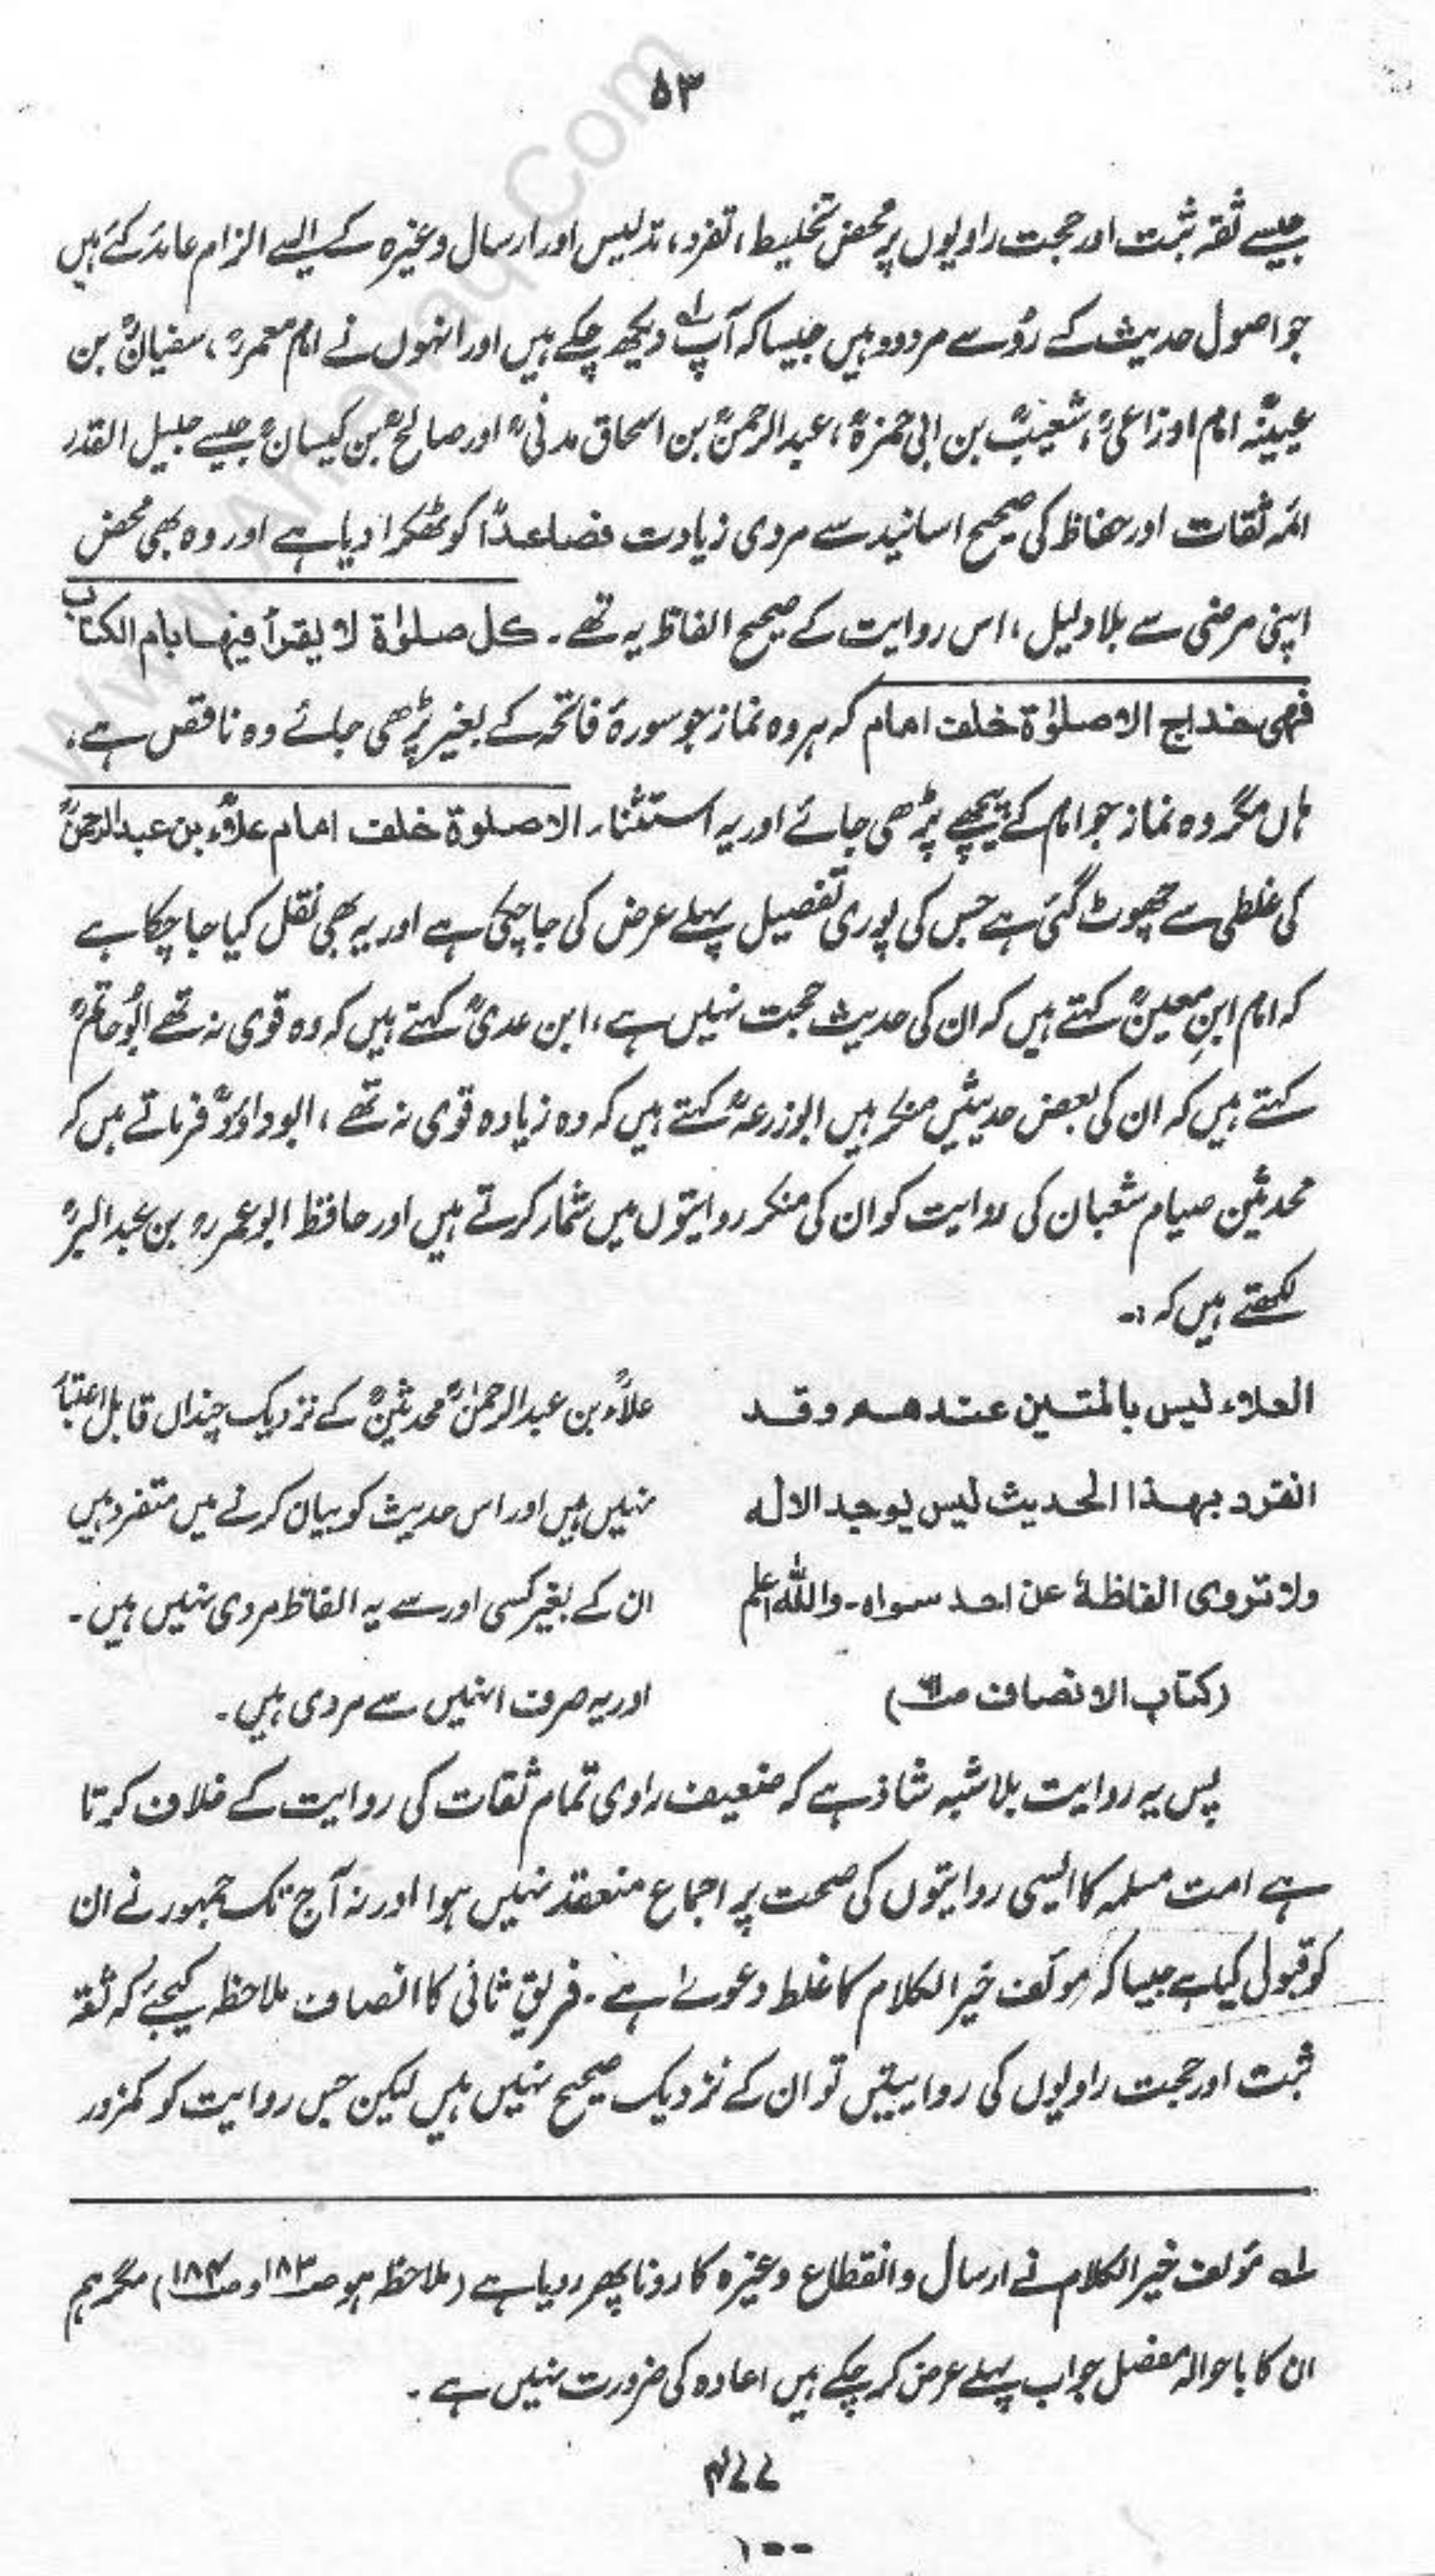 ۵۳
جیسے ثقہ ثبت اور حجت راویوں پر محض تخلیط، تفرد، تدلیس اور ارسال وغیرہ کے ایسے الزام عائد کئے ہیں
جو اصول حدیث کے رُو سے مردود ہیں جیسا کہ آپ لہ دیکھ چکے ہیں اور انہوں نے امام معمرؒ، سفیانؒ بن
عیینہؒ امام اوزاعیؒ، شعیبؒ بن ابی حمزہؒ، عبدالرحمنؒ بن اسحاق مدنیؒ اور صالحؒ بن کیسانؒ جیسے جلیل القدر
ائمہ ثقات اور حفاظ کی صحیح اسانید سے مروی زیادت فصاعدًا کو ٹھکرا دیا ہے اور وہ بھی محض
اپنی مرضی سے بلا دلیل، اس روایت کے صحیح الفاظ یہ تھے۔ کل صلوٰۃ لا یقرأ فیہا بام الکتاب
فھی خداج الا صلوٰۃ خلف امام کہ ہر وہ نماز جو سورۂ فاتحہ کے بغیر پڑھی جائے وہ ناقص ہے،
ہاں مگر وہ نماز جو امام کے پیچھے پڑھی جائے اور یہ استثناء الا صلوۃ خلف امام علاءؒ بن عبدالرحمنؒ
کی غلطی سے چھوٹ گئی ہے جس کی پوری تفصیل پہلے عرض کی جا چکی ہے اور یہ بھی نقل کیا جا چکا ہے
کہ امام ابنِ معینؒ کہتے ہیں کہ ان کی حدیث حجت نہیں ہے، ابن عدیؒ کہتے ہیں کہ وہ قوی نہ تھے ابُو حاتمؒ
کہتے ہیں کہ ان کی بعض حدیثیں منکر ہیں ابوزرعہؒ کہتے ہیں کہ وہ زیادہ قوی نہ تھے، ابوداؤدؒ فرماتے ہیں کہ
محدثین صیام شعبان کی روایت کو ان کی منکر روایتوں میں شمار کرتے ہیں اور حافظ ابوعمرؒ بن عبدالبرؒ
لکھتے ہیں کہ :۔
العلاء لیس بالمتین عندھم وقد
انفرد بھذا الحدیث لیس یوجد الا لہ
ولا تروی الفاظہٗ عن احد سواہ۔ واللہ اعلم
(کتاب الانصاف صـ)
علاءؒ بن عبدالرحمٰنؒ محدثینؒ کے نزدیک چنداں قابل اعتبار
نہیں ہیں اور اس حدیث کو بیان کرنے میں متفرد ہیں
ان کے بغیر کسی اور سے یہ الفاظ مروی نہیں ہیں۔
اور یہ صرف انہیں سے مروی ہیں۔
پس یہ روایت بلا شبہ شاذ ہے کہ ضعیف راوی تمام ثقات کی روایت کے خلاف کرتا
ہے امت مسلمہ کا ایسی روایتوں کی صحت پر اجماع منعقد نہیں ہوا اور نہ آج تک جمہور نے ان
کو قبول کیا ہے جیسا کہ مؤلف خیر الکلام کا غلط دعوےٰ ہے۔ فریق ثانی کا انصاف ملاحظہ کیجئے کہ ثقہ
ثبت اور حجت راویوں کی روایتیں تو ان کے نزدیک صحیح نہیں ہیں لیکن جس روایت کو کمزور
لہ مؤلف خیر الکلام نے ارسال و انقطاع وغیرہ کا رونا پھر رویا ہے (ملاحظہ ہو صـ۱۸۳ و صـ۱۸۴) مگر ہم
ان کا باحوالہ مفصل جواب پہلے عرض کر چکے ہیں اعادہ کی ضرورت نہیں ہے۔
۴۷۷
۱۰۰
www.Ahnahaq.Com